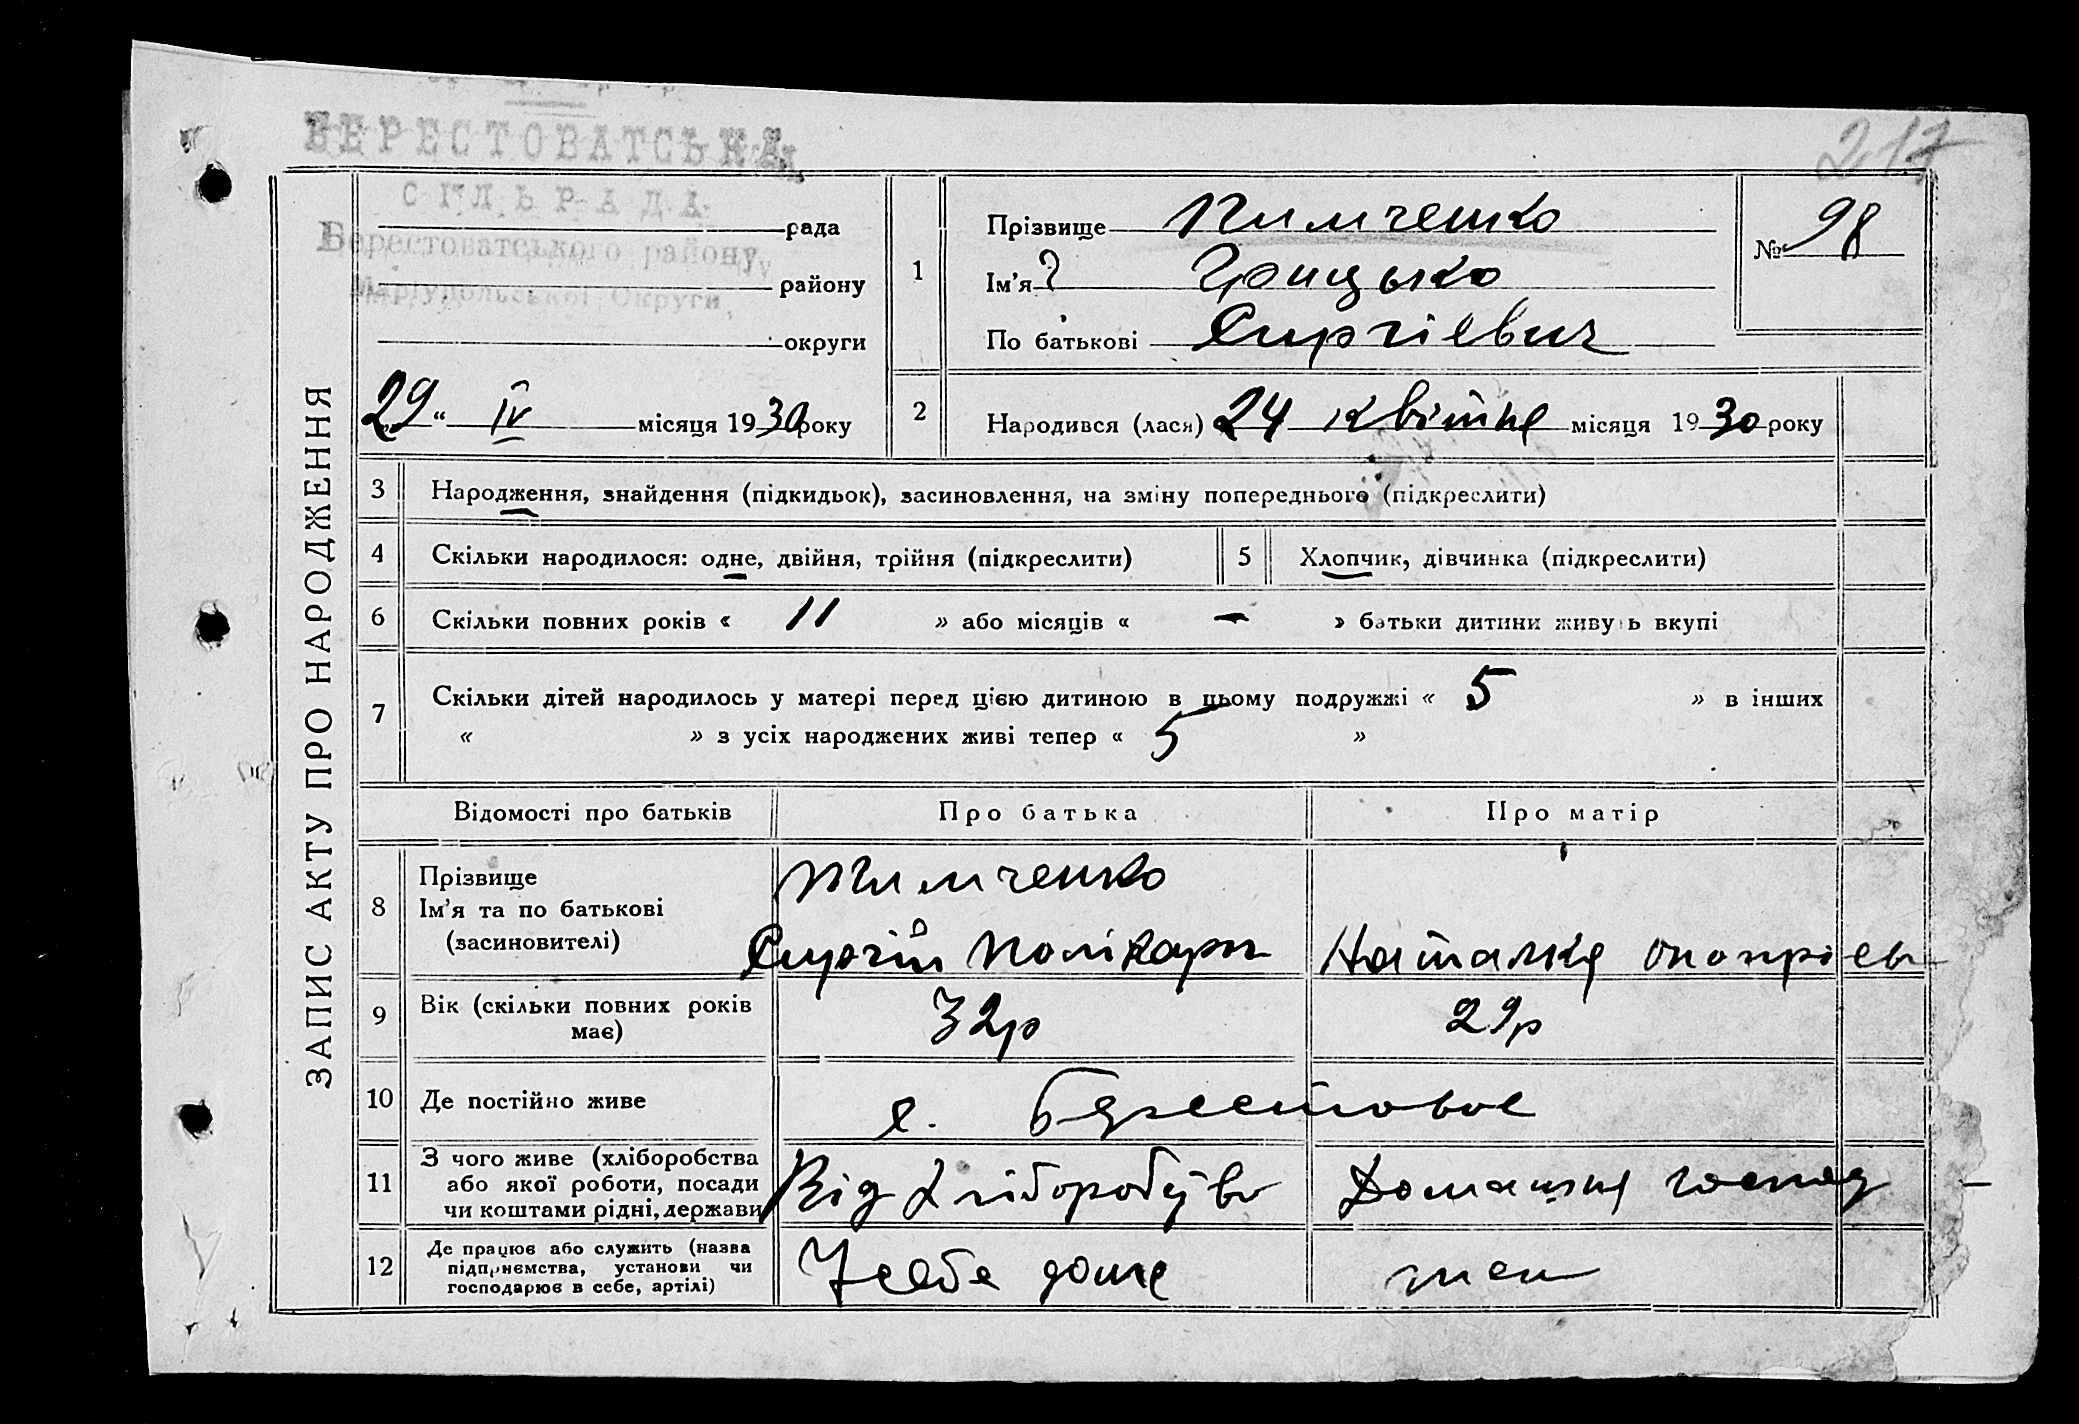 217
БЕРЕСТОВАТСЬКА
СІЛЬРАДА
Берестоватського району
Маріупольської Округи
рада
району
округи
29 “ IV місяця 1930 року
1
Прізвище Тимченко
Ім'я Грицько
По батькові Сиргіевич
№ 98
2
Народився (лася) 24 квітня місяця 1930 року
ЗАПИС АКТУ ПРО НАРОДЖЕННЯ
3 Народження, знайдення (підкидьок), засиновлення, на зміну попереднього (підкреслити)
4 Скільки народилося: одне, двійня, трійня (підкреслити)
5 Хлопчик, дівчинка (підкреслити)
6 Скільки повних років « 11 » або місяців « — » батьки дитини живуть вкупі
7 Скільки дітей народилось у матері перед цією дитиною в цьому подружжі « 5 » в інших
« » з усіх народжених живі тепер « 5 »
Відомості про батьків Про батька Про матір
8 Прізвище
Ім'я та по батькові
(засиновителі)
Тимченко
Сиргій Полікарп Наталка Онопріев
9 Вік (скільки повних років
має)
32р 29р
10 Де постійно живе с. Берестовое
11 З чого живе (хліборобства
або якої роботи, посади
чи коштами рідні, держави
Від Хліборобув Домашня господ
12 Де працює або служить (назва
підприємства, установи чи
господарює в себе, артілі)
У себе дома теж